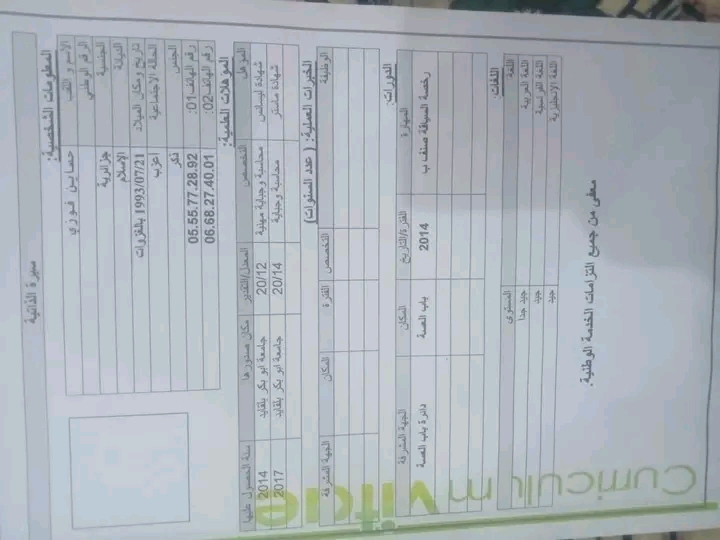 سيرة الذاتية
المعلومات الشخصية:
الاسم و اللقب حصايم فوزي
الرقم الوطني
الجنسية جزائرية
الديانة الإسلام
تاريخ ومكان الميلاد 1993/07/21 بالغزوات
الحالة الاجتماعية أعزب
الجنس ذكر
رقم الهاتف 01: 05.55.77.28.92
رقم الهاتف 02: 06.68.27.40.01
المؤهلات العلمية:
المؤهل التخصص المعدل/التقدير مكان صدورها سنة الحصول عليها
شهادة ليسانس محاسبة وجباية مهنية 20/12 جامعة ابو بكر بلقايد 2014
شهادة ماستر محاسبة وجباية 20/14 جامعة ابو بكر بلقايد 2017
الخبرات العملية: ( عدد السنوات)
الوظيفة التخصص الفترة المكان الجهة المشرفة
الدورات:
المهارة الفترة/التاريخ المكان الجهة المشرفة
رخصة السياقة صنف ب 2014 باب العسة دائرة باب العسة
اللغات:
اللغة المستوى
اللغة العربية جيد جدا
اللغة الفرنسية جيد
اللغة الإنجليزية جيد
معفى من جميع التزامات الخدمة الوطنية.
Curriculum vitae